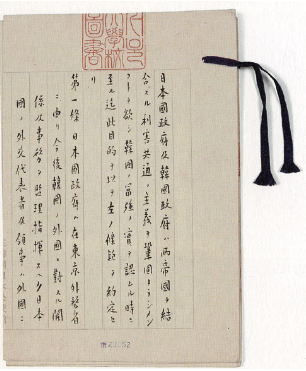 日本國政府及韓國政府ハ兩帝國ヲ結
合スル利害共通ノ主義ヲ鞏固ナラシメン
コトヲ欲シ韓國ノ富強ノ實ヲ認ムル時ニ
至ル迄此目的ヲ以テ左ノ條款ヲ約定セ
リ
第一條 日本國政府ハ在東京外務省
ニ由リ今後韓國ノ外國ニ對スル關
係及事務ヲ監理指揮スヘク日本
國ノ外交代表者及領事ハ外國ニ